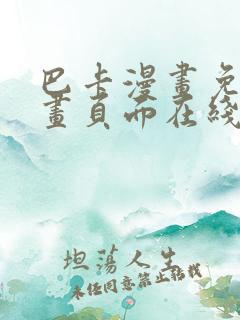 巴卡漫畫免
畫頁面在綫
坦蕩人生
未经同意禁止转载